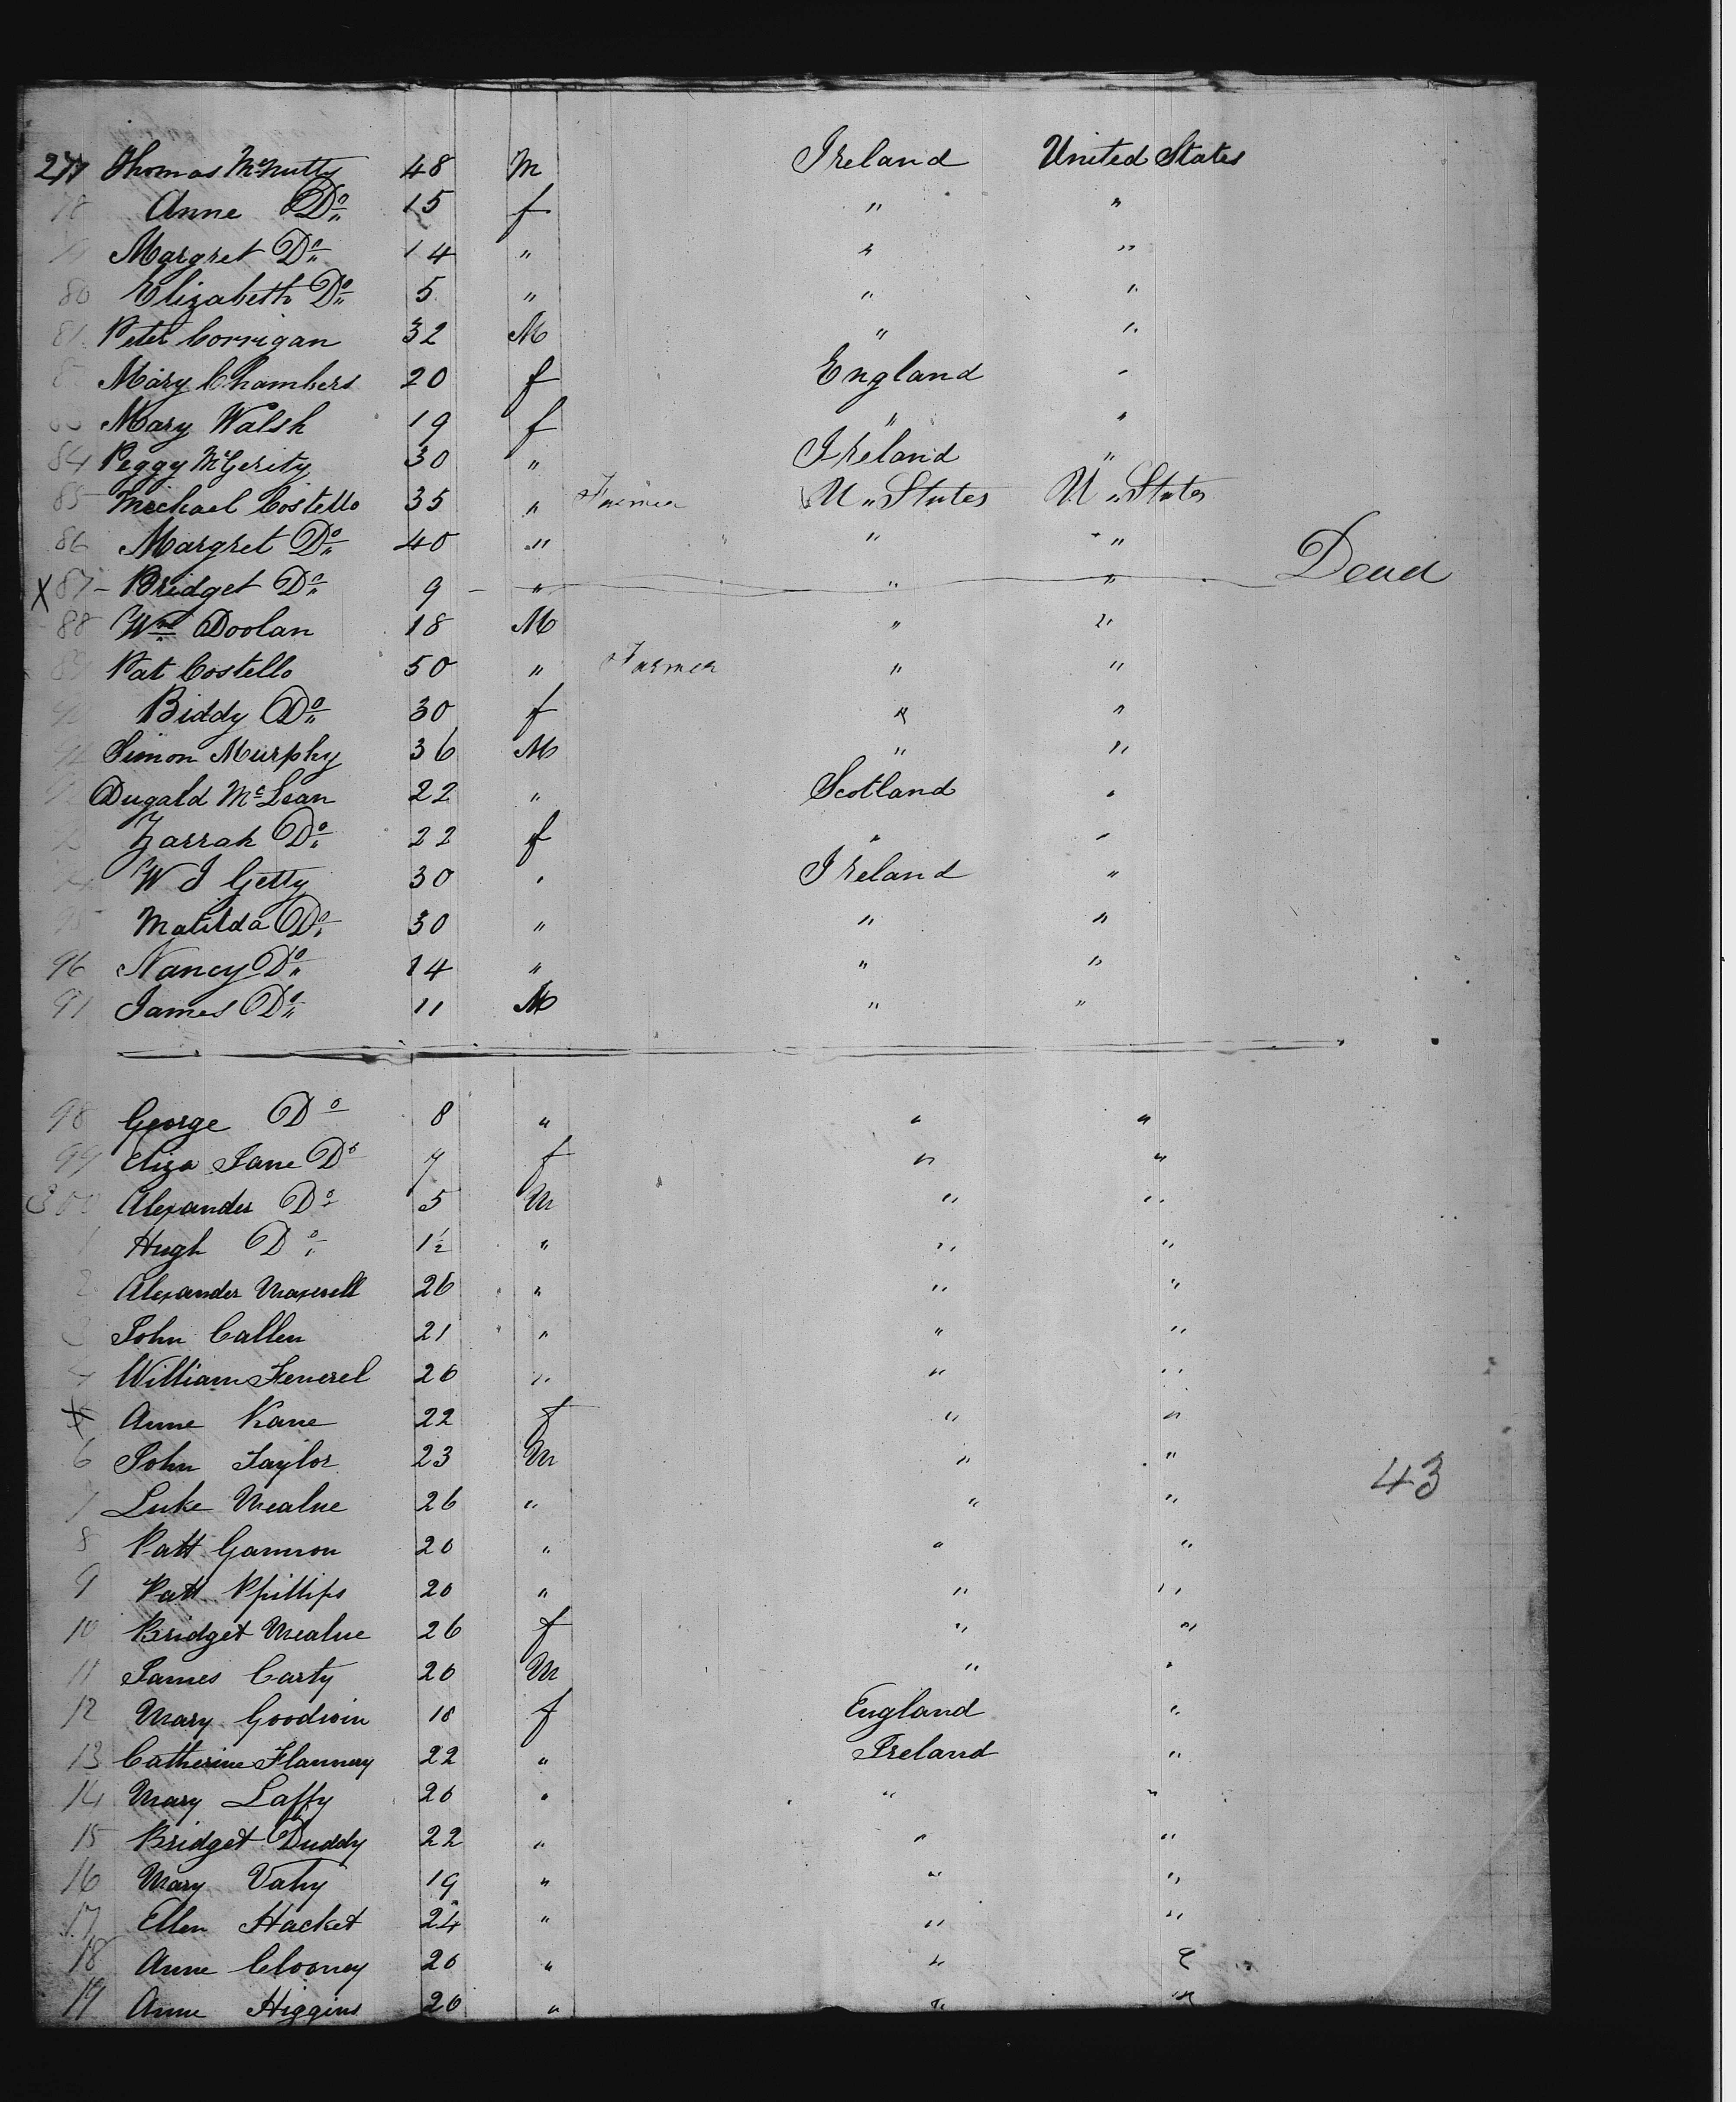 277 Thomas McNutty 48 M Ireland United States
78 Anne Do 15 f " "
79 Margret Do 14 " " "
80 Elizabeth Do 5 " " "
81 Peter Corrigan 32 M " "
82 Mary Chambers 20 f England "
83 Mary Walsh 19 f " "
84 Peggy McGerity 30 " Ireland "
85 Michael Costello 35 " Farmer U States U States
86 Margret Do 40 " " "
X 87 - Bridget Do 9 - " " " Dead
88 Wm Doolan 18 M " "
89 Pat Costello 50 " Farmer " "
90 Biddy Do 30 f " "
91 Simon Murphy 36 M " "
92 Dugald McLean 22 " Scotland "
93 Zarrah Do 22 f " "
94 W J Getty 30 " Ireland "
95 Matilda Do 30 " " "
96 Nancy Do 14 " " "
97 James Do 11 M " "
98 George Do 8 " " "
99 Eliza Jane Do 7 f " "
300 Alexander Do 5 M " "
1 Hugh Do 1½ " " "
2 Alexander Maxwell 26 " " "
3 John Callen 21 " " "
4 William 20 " " "
X Anne Kane 22 f " "
6 John Taylor 23 M " "
7 Luke Mealue 26 " " " 43
8 Patt Gannon 20 " " "
9 Patt Phillips 20 " " "
10 Bridget Mealue 26 f " "
11 James Carty 20 M " "
12 Mary Goodwin 18 f England "
13 Catherine Flannery 22 " Ireland "
14 Mary Laffy 20 " " "
15 Bridget Duddy 22 " " "
16 Mary Vahy 19 " " "
17 Ellen Hacket 24 " " "
18 Anne Clooney 20 " " "
19 Anne Higgins 20 " " "